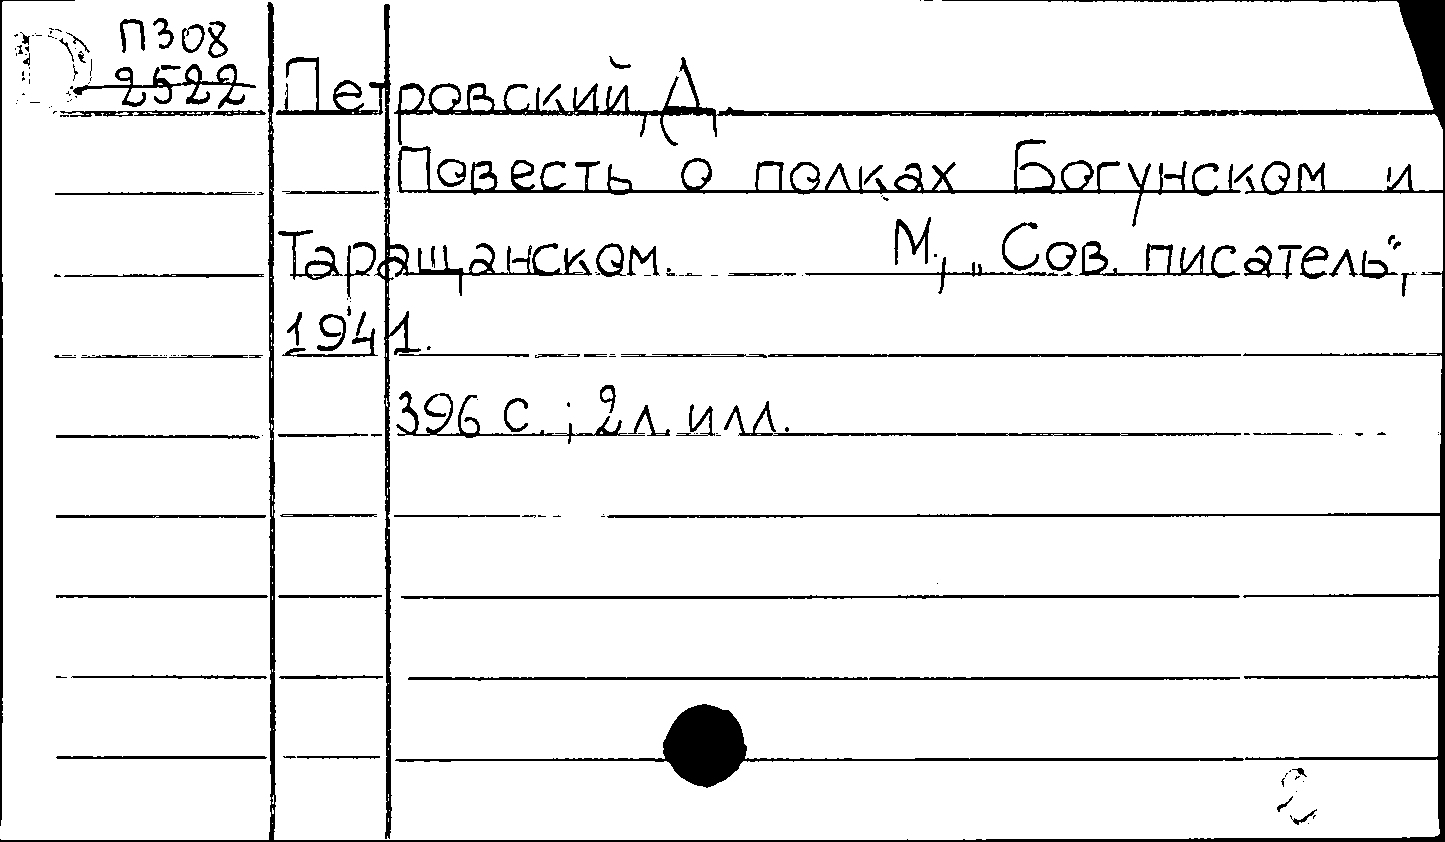 D П308
2522 Петровский, Д.
Повесть о полках Богунском и
Таращанском. М., „Сов. писатель“,
1941.
396 с. ; 2 л. илл.
2